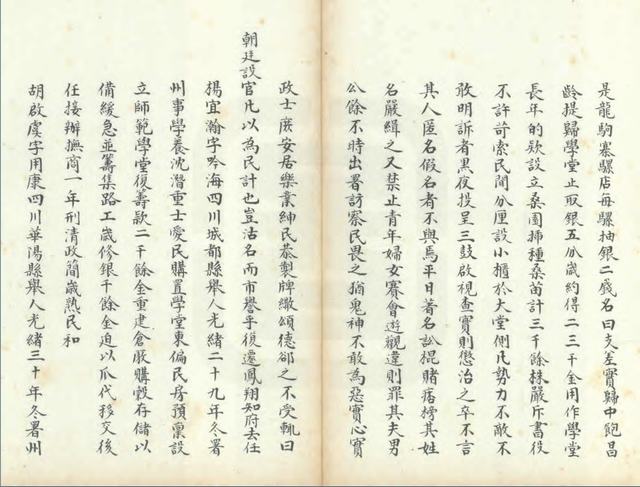 是龍駒寨騾店每騾抽銀二錢名曰支差實歸中飽昌
齡提歸學堂止取銀五分歲約得二三千金用作學堂
長年的款設立桑園插種桑苗計三千餘株嚴斥書役
不許苛索民間分厘設小櫃於大堂側凡勢力不敵不
敢明訴者黑夜投呈三鼓啟視查實則懲治之卒不言
其人匿名假名者不與焉平日著名訟棍賭痞榜其姓
名嚴緝之又禁止青年婦女賽會遊觀違則罪其夫男
公餘不時出署訪察民畏之猶鬼神不敢為惡實心實
政士庶安居樂業紳民恭製牌繖頌德卻之不受輒曰
朝廷設官凡以為民計也豈沽名而市譽乎復遷鳳翔知府去任
楊宜瀚字吟海四川城都縣舉人光緒二十九年冬署
州事學養沈潛重士愛民購置學堂東偏民房預稟設
立師範學堂復籌款二千餘金重建倉廒購穀存儲以
備緩急並籌集路工歲修銀千餘金迨以瓜代移交後
任接辦撫商一年刑清政簡歲熟民和
胡啟虞字用康四川華陽縣舉人光緒三十年冬署州